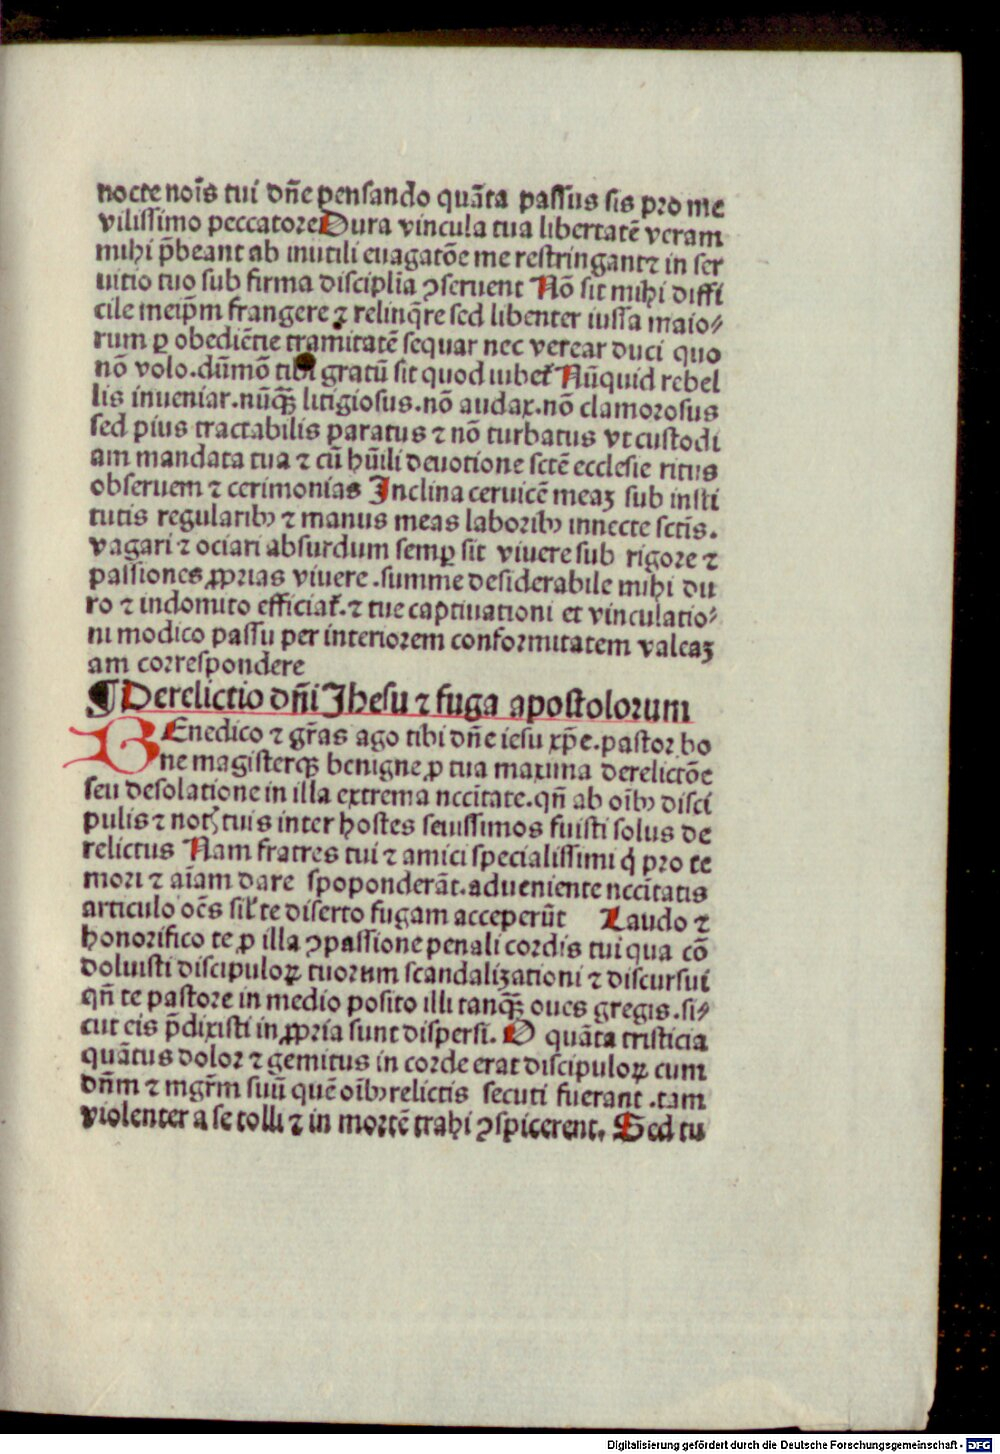 nocte noı̄s tui dn̄e pensando quāta passus sis pro me
vilissimo peccatore Dura vincula tua libertatē veram
mihi p̄beant ab inutili euagatōe me restringantꝛ in ser
uitio tuo sub firma disciplīa ꝯseruent Nō sit mihi diffi
cile meip̄m frangere ⁊ relinq̄re sed libenter iussa maio⸗
rum ꝑ obediētie tramitatē sequar nec verear duci quo
nō volo.dūmō tibi gratū sit quod iubet᷑ Nūquid rebel
lis inueniar.nūꝙ̄ litigiosus.nō audax.nō clamorosus
sed pius tractabilis paratus ⁊ nō turbatus vt custodi
am mandata tua ⁊ cū hūili deuotione sctē ecclesie ritus
obseruem ⁊ cerimonias Inclina ceruicē meaꝫ sub insti
tutis regularibꝰ ⁊ manus meas laboribꝰ innecte sctīs.
vagari ⁊ ociari absurdum semꝑ sit viuere sub rigore ⁊
passiones ꝓprias viuere .summe desiderabile mihi du
ro ⁊ indomito efficiat᷑.⁊ tue captiuationi et vinculatio⸗
ni modico passu per interiorem conformitatem valeaꝫ
am correspondere
¶ Derelictio dn̄i Jhesu ⁊ fuga apostolorum
BEnedico ⁊ gr̄as ago tibi dn̄e iesu xp̄e.pastor bo
ne magisterqꝫ benigne ꝓ tua maxima derelictōe
seu desolatione in illa extrema nccītate.qn̄ ab oı̄bꝰ disci
pulis ⁊ notꝭ tuis inter hostes seuissimos fuisti solus de
relictus Nam fratres tui ⁊ amici specialissimi q̇ pro te
mori ⁊ aı̄am dare spoponderāt.adueniente nccītatis
articulo oēs sil̓ te diserto fugam acceperūt Laudo ⁊
honorifico te ꝓ illa ꝯpassione penali cordis tui qua cō
doluisti discipuloꝝ tuorum scandalizationi ⁊ discursui
qn̄ te pastore in medio posito illi tanꝙ̄ oues gregis.si⸗
cut eis p̄dixisti in ꝓpria sunt dispersi. O quāta tristicia
quātus dolor ⁊ gemitus in corde erat discipuloꝝ cum
dn̄m ⁊ mgr̄m suū quē oı̄bꝰ relictis secuti fuerant .tam
violenter a se tolli ⁊ in mortē trahi ꝯspicerent. Sed tu
Digitalisierung gefördert durch die Deutsche Forschungsgemeinschaft - DFG